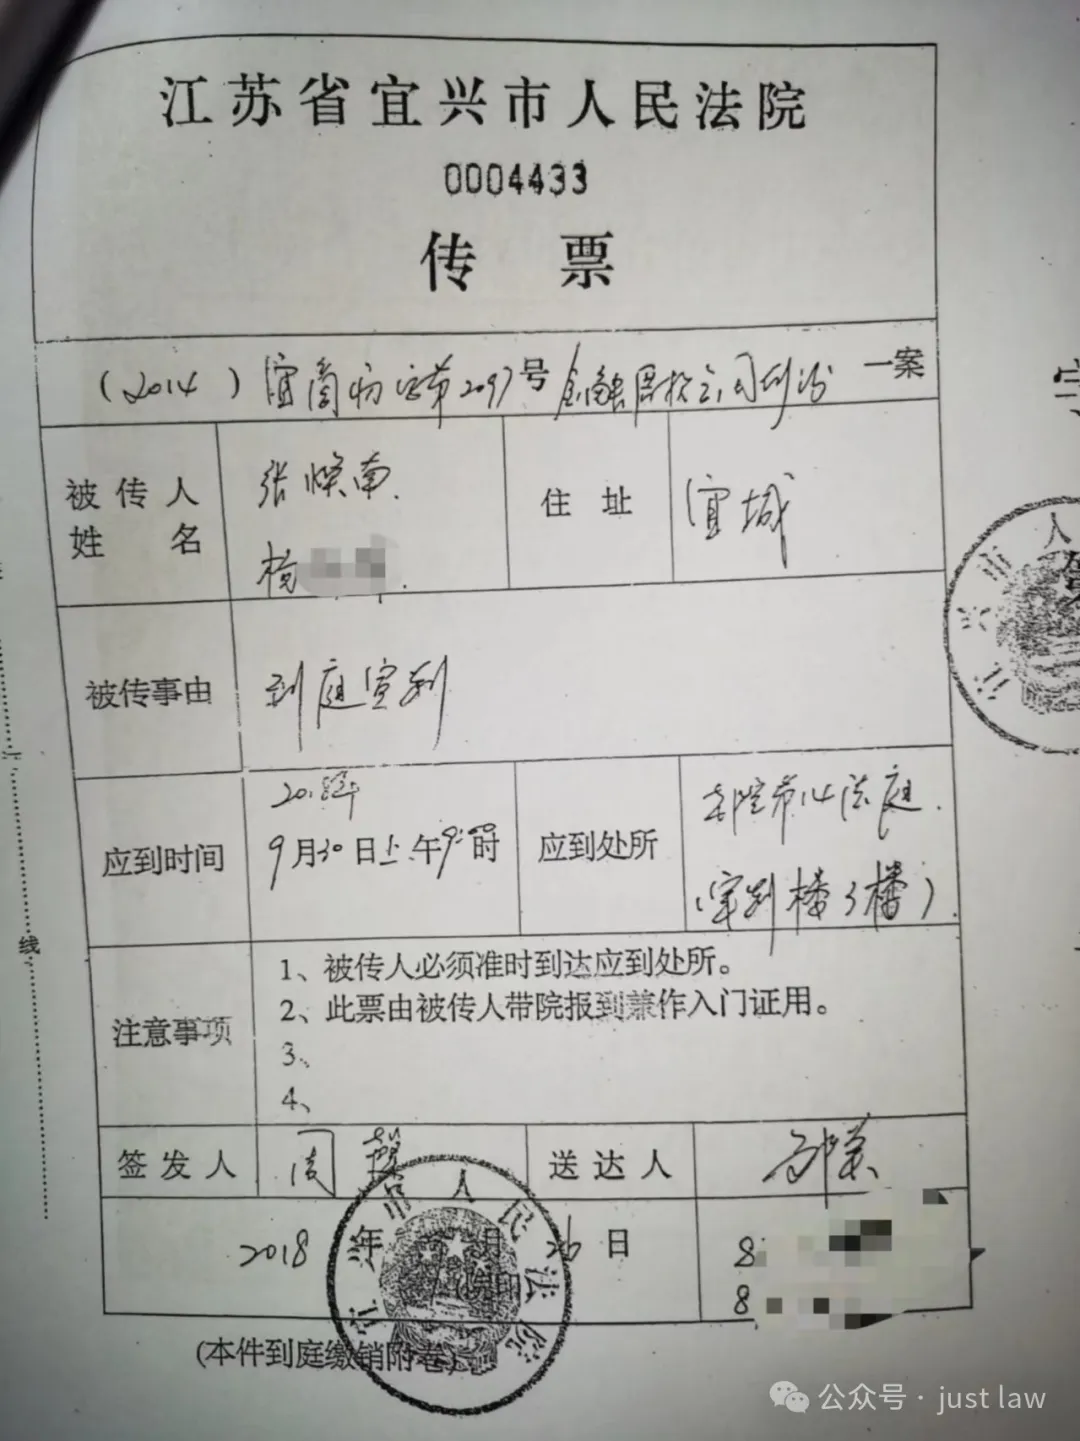 江苏省宜兴市人民法院
0004433
传 票
（2014）宜商初字第2097号 金融 公司纠纷 一案
被传人姓名
张焕南.
杨
住址
宜城
被传事由
到庭宣判
应到时间
2018年
9月30日上午9:00时
应到处所
本院第14法庭.
（审判楼3楼）.
注意事项
1、被传人必须准时到达应到处所。
2、此票由被传人带院报到兼作入门证用。
3、
4、
签发人
周
送达人
邵荣
2018年 月26日
（院印）
8
8
（本件到庭缴销附卷）
线
公众号 · just law